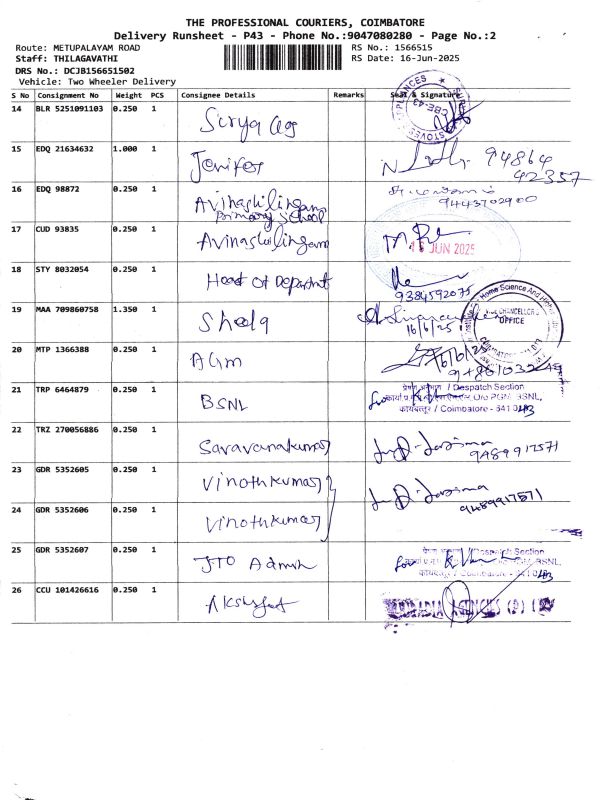 THE PROFESSIONAL COURIERS, COIMBATORE
Delivery Runsheet - P43 - Phone No.:9047080280 - Page No.:2
Route: METUPALAYAM ROAD RS No.: 1566515
Staff: THILAGAVATHI RS Date: 16-Jun-2025
DRS No.: DCJB156651502
Vehicle: Two Wheeler Delivery
S No Consignment No Weight PCS Consignee Details Remarks Seal & Signature
14 BLR 5251091103 0.250 1 Surya
CBE-43
15 EDQ 21634632 1.000 1 Jenifer 94864
42357
16 EDQ 98872 0.250 1 Avinashilingam
Primary School
9443702900
17 CUD 93835 0.250 1 Avinashilingam
JUN 2025
18 STY 8032054 0.250 1 Head of Department
9384592075
19 MAA 709860758 1.350 1 Sheela
16/6/25
Home Science And
OFFICE
20 MTP 1366388 0.250 1
21 TRP 6464879 0.250 1 BSNL
/ Despatch Section
BSNL,
/ Coimbatore -
22 TRZ 270056886 0.250 1 Saravanakumar
9489917571
23 GDR 5352605 0.250 1 Vinothkumar
9489917571
24 GDR 5352606 0.250 1 Vinothkumar
25 GDR 5352607 0.250 1 JTO Admin
Despatch Section
BSNL,
/ Coimbatore -
26 CCU 101426616 0.250 1
AGENCIES (P)